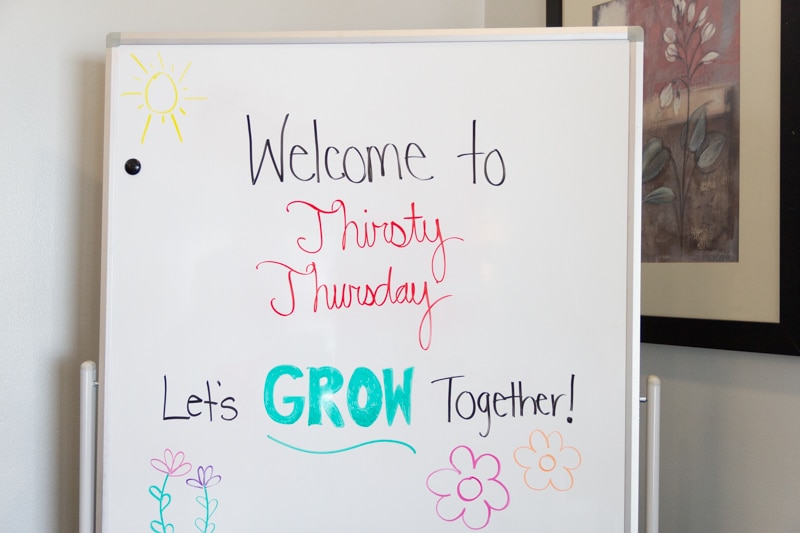 Welcome to
Thirsty
Thursday
Let's GROW Together!